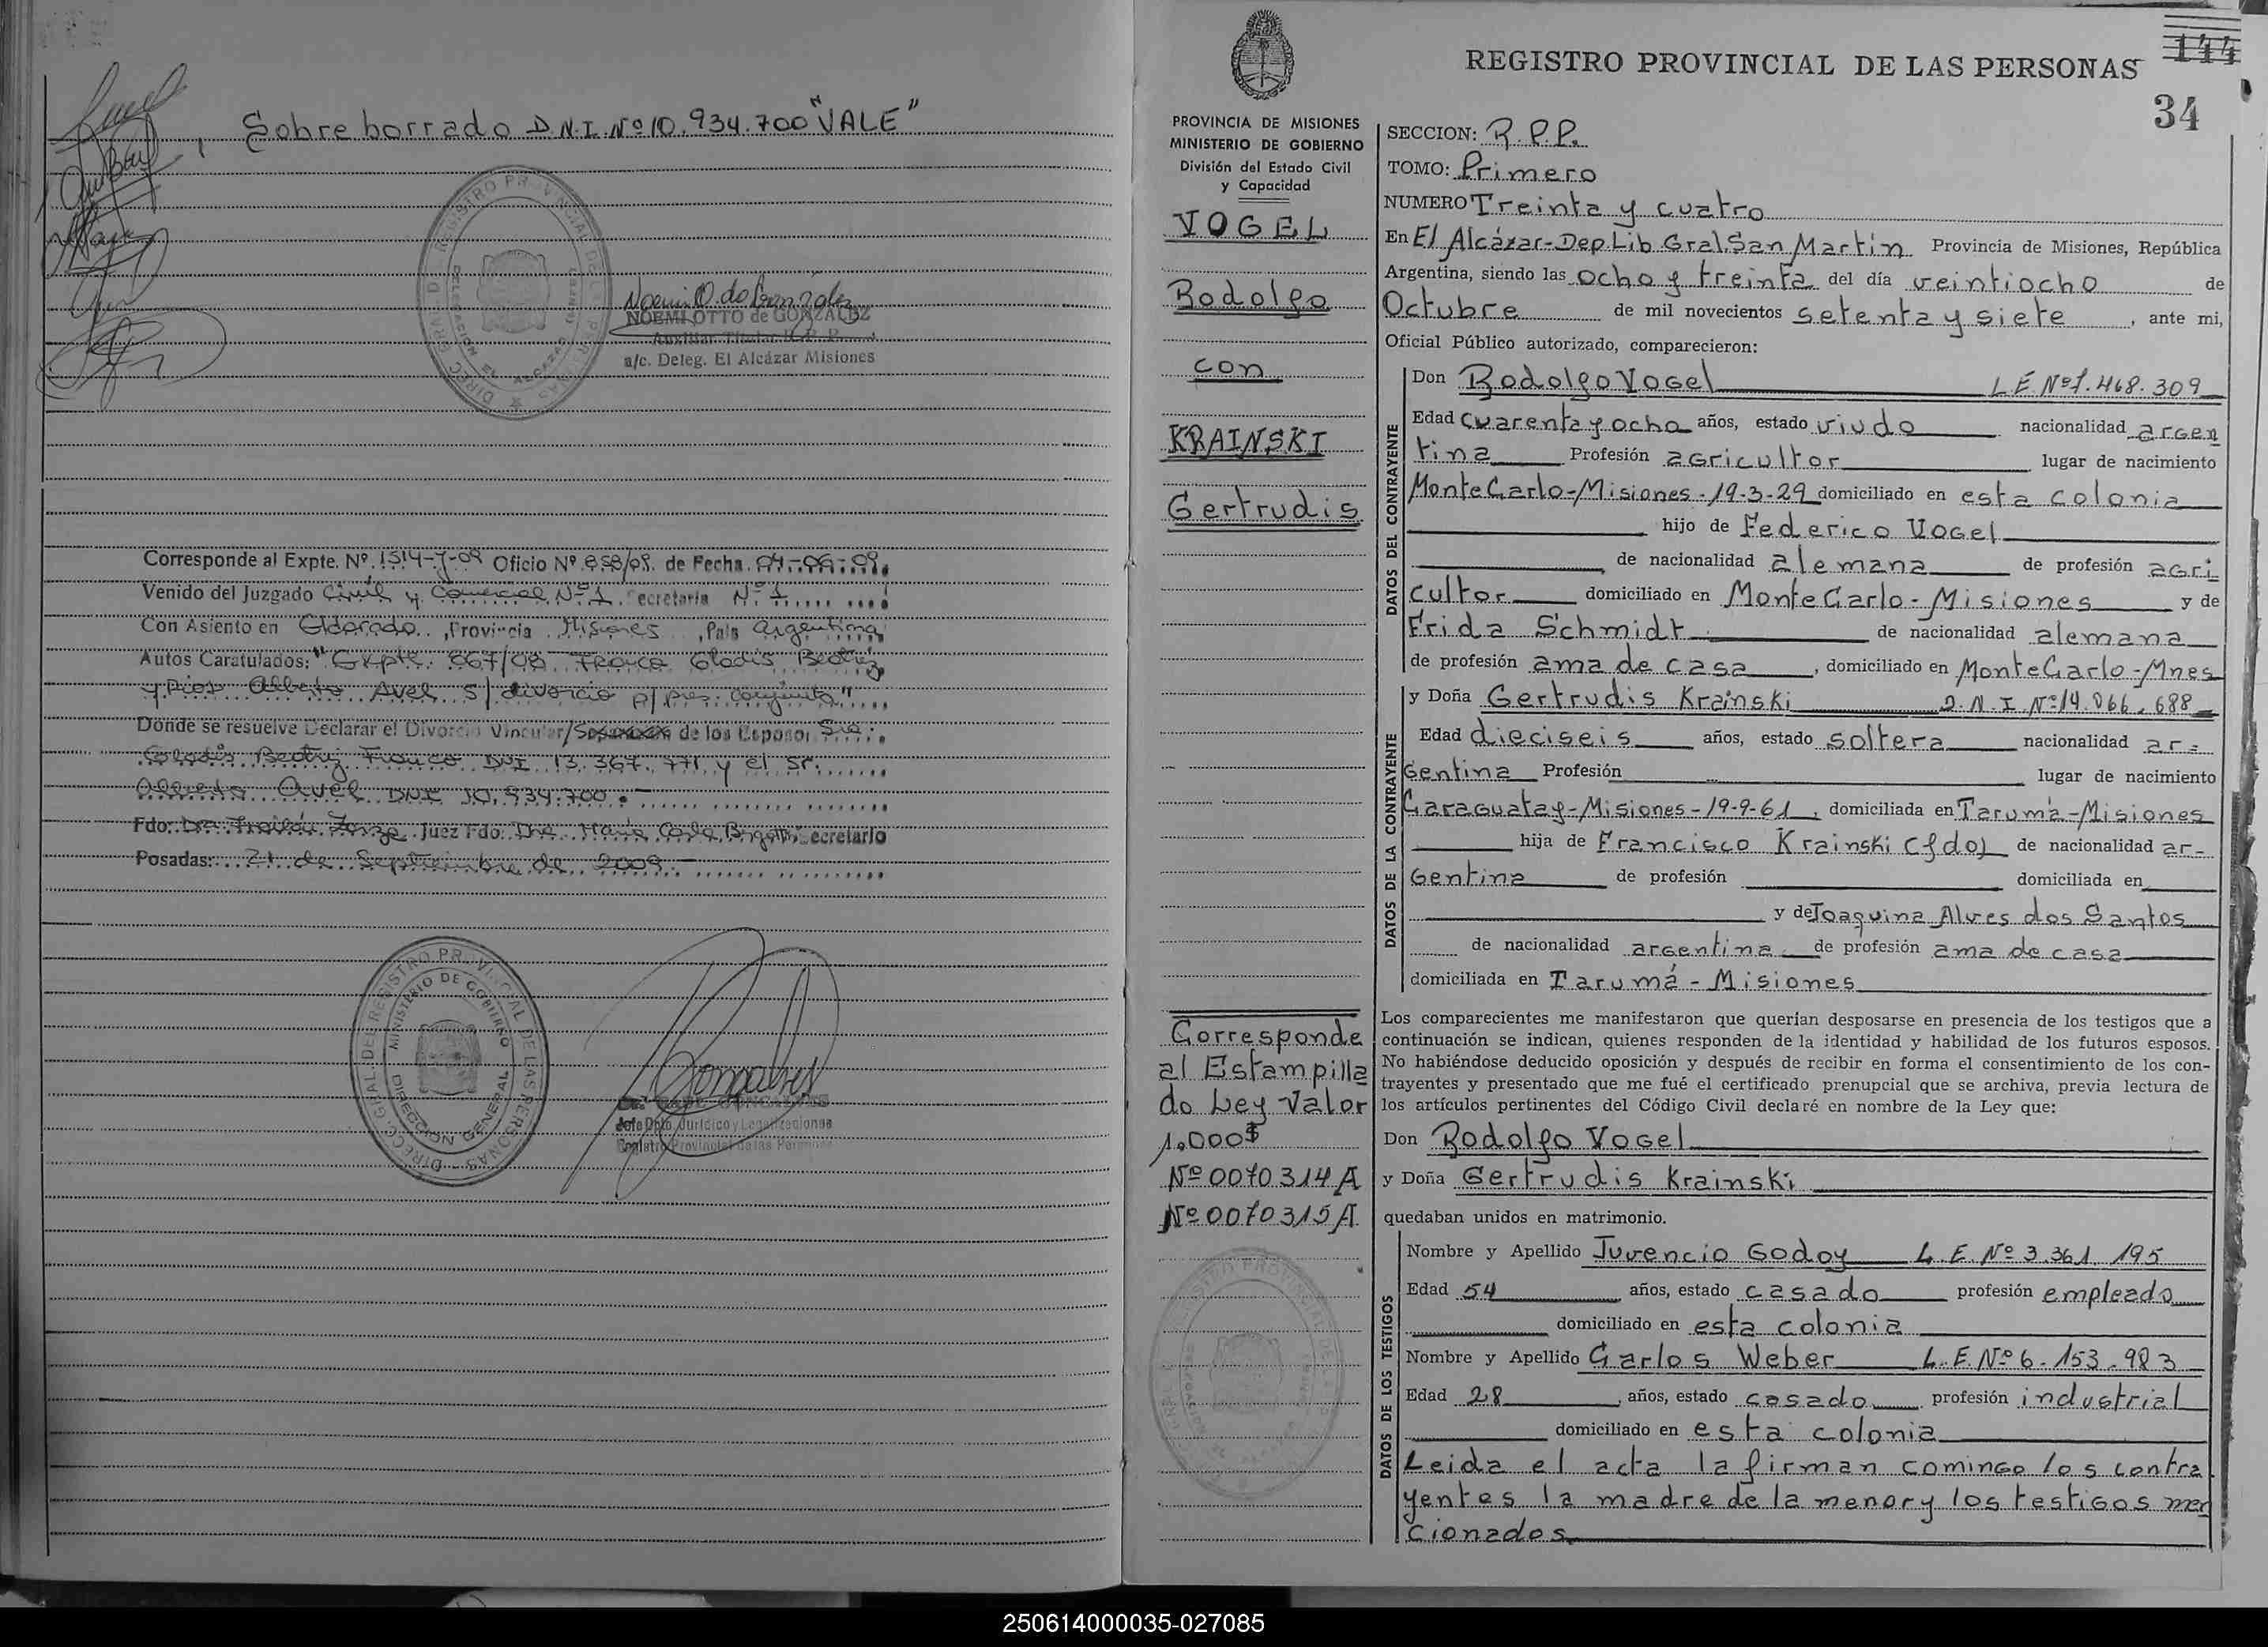 Sobre borrado D.N.I. Nº 10.934.700 "VALE"
Noemi O. de González
NOEMI OTTO de GONZALEZ
Auxiliar Titular R. P. P.
a/c. Deleg. El Alcázar Misiones
Corresponde al Expte. Nº. 1514-J-09 Oficio Nº 858/09. de Fecha. 04-06-09.
Venido del Juzgado Civil y Comercial Nº 1. Secretaria Nº 1
Con Asiento en Eldorado, Provincia Misiones, Pais Argentina
Autos Caratulados: "Expte. 867/08 Franco Gladis Beatriz
y Pios Alberto Avel s/ divorcio p/ pres. conjunta"
Donde se resuelve Declarar el Divorcio Vincular/ de los Esposos Sra.
Gladis Beatriz Franco DNI 13.367.771 y el Sr.
Alberto Avel DNI 10.934.700.
Fdo: Dra. Juez Fdo: Dra. María Secretario
Posadas: 21 de Septiembre de 2009
DIRECC. GRAL. DE REGISTRO PROVINCIAL DE LAS PERSONAS
MINISTERIO DE GOBIERNO
DIRECCION GENERAL
GONCALVES
Jefe Dpto. Jurídico y Legalizaciones
Registro Provincial de las Personas
144
REGISTRO PROVINCIAL DE LAS PERSONAS
34
PROVINCIA DE MISIONES
MINISTERIO DE GOBIERNO
División del Estado Civil
y Capacidad
VOGEL
Rodolfo
con
KRAINSKI
Gertrudis
Corresponde
al Estampilla
do Ley Valor
1.000$
Nº 0070314 A
Nº 0070315 A
SECCION: R.P.P.
TOMO: Primero
NUMERO Treinta y cuatro
En El Alcázar-Dep.Lib.Gral.San Martín Provincia de Misiones, República
Argentina, siendo las ocho y treinta del día veintiocho de
Octubre de mil novecientos setenta y siete, ante mi,
Oficial Público autorizado, comparecieron:
DATOS DEL CONTRAYENTE
Don Rodolfo Vogel L.E Nº 7.468.309
Edad cuarenta y ocho años, estado viudo nacionalidad argen
tina Profesión agricultor lugar de nacimiento
Monte Carlo-Misiones-19-3-29 domiciliado en esta colonia
hijo de Federico Vogel
de nacionalidad alemana de profesión agri
cultor domiciliado en Monte Carlo-Misiones y de
Frida Schmidt de nacionalidad alemana
de profesión ama de casa, domiciliado en Monte Carlo-Mnes
DATOS DE LA CONTRAYENTE
y Doña Gertrudis Krainski D.N.I. Nº 14.066.688
Edad dieciseis años, estado soltera nacionalidad ar-
gentina Profesión lugar de nacimiento
Caraguatay-Misiones-19-9-61, domiciliada en Tarumá-Misiones
hija de Francisco Krainski (fdo) de nacionalidad ar-
gentina de profesión domiciliada en
y de Joaquina Alves dos Santos
de nacionalidad argentina de profesión ama de casa
domiciliada en Tarumá-Misiones
Los comparecientes me manifestaron que querían desposarse en presencia de los testigos que a
continuación se indican, quienes responden de la identidad y habilidad de los futuros esposos.
No habiéndose deducido oposición y después de recibir en forma el consentimiento de los con-
trayentes y presentado que me fué el certificado prenupcial que se archiva, previa lectura de
los artículos pertinentes del Código Civil declaré en nombre de la Ley que:
Don Rodolfo Vogel
y Doña Gertrudis Krainski
quedaban unidos en matrimonio.
DATOS DE LOS TESTIGOS
Nombre y Apellido Juvencio Godoy L.E. Nº 3.361.195
Edad 54 años, estado casado profesión empleado
domiciliado en esta colonia
Nombre y Apellido Carlos Weber L.E. Nº 6.153.983
Edad 28, años, estado casado profesión industrial
domiciliado en esta colonia
Leida el acta la firman comingo los contra
yentes la madre de la menor y los testigos men
cionados
250614000035-027085